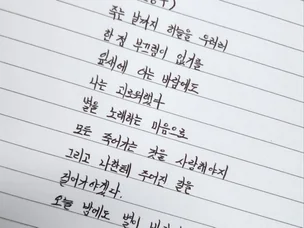 죽는 날까지 하늘을 우러러
한 점 부끄럼이 없기를
잎새에 이는 바람에도
나는 괴로워했다
별을 노래하는 마음으로
모든 죽어가는 것을 사랑해야지
그리고 나한테 주어진 길을
걸어가야겠다.
오늘 밤에도 별이